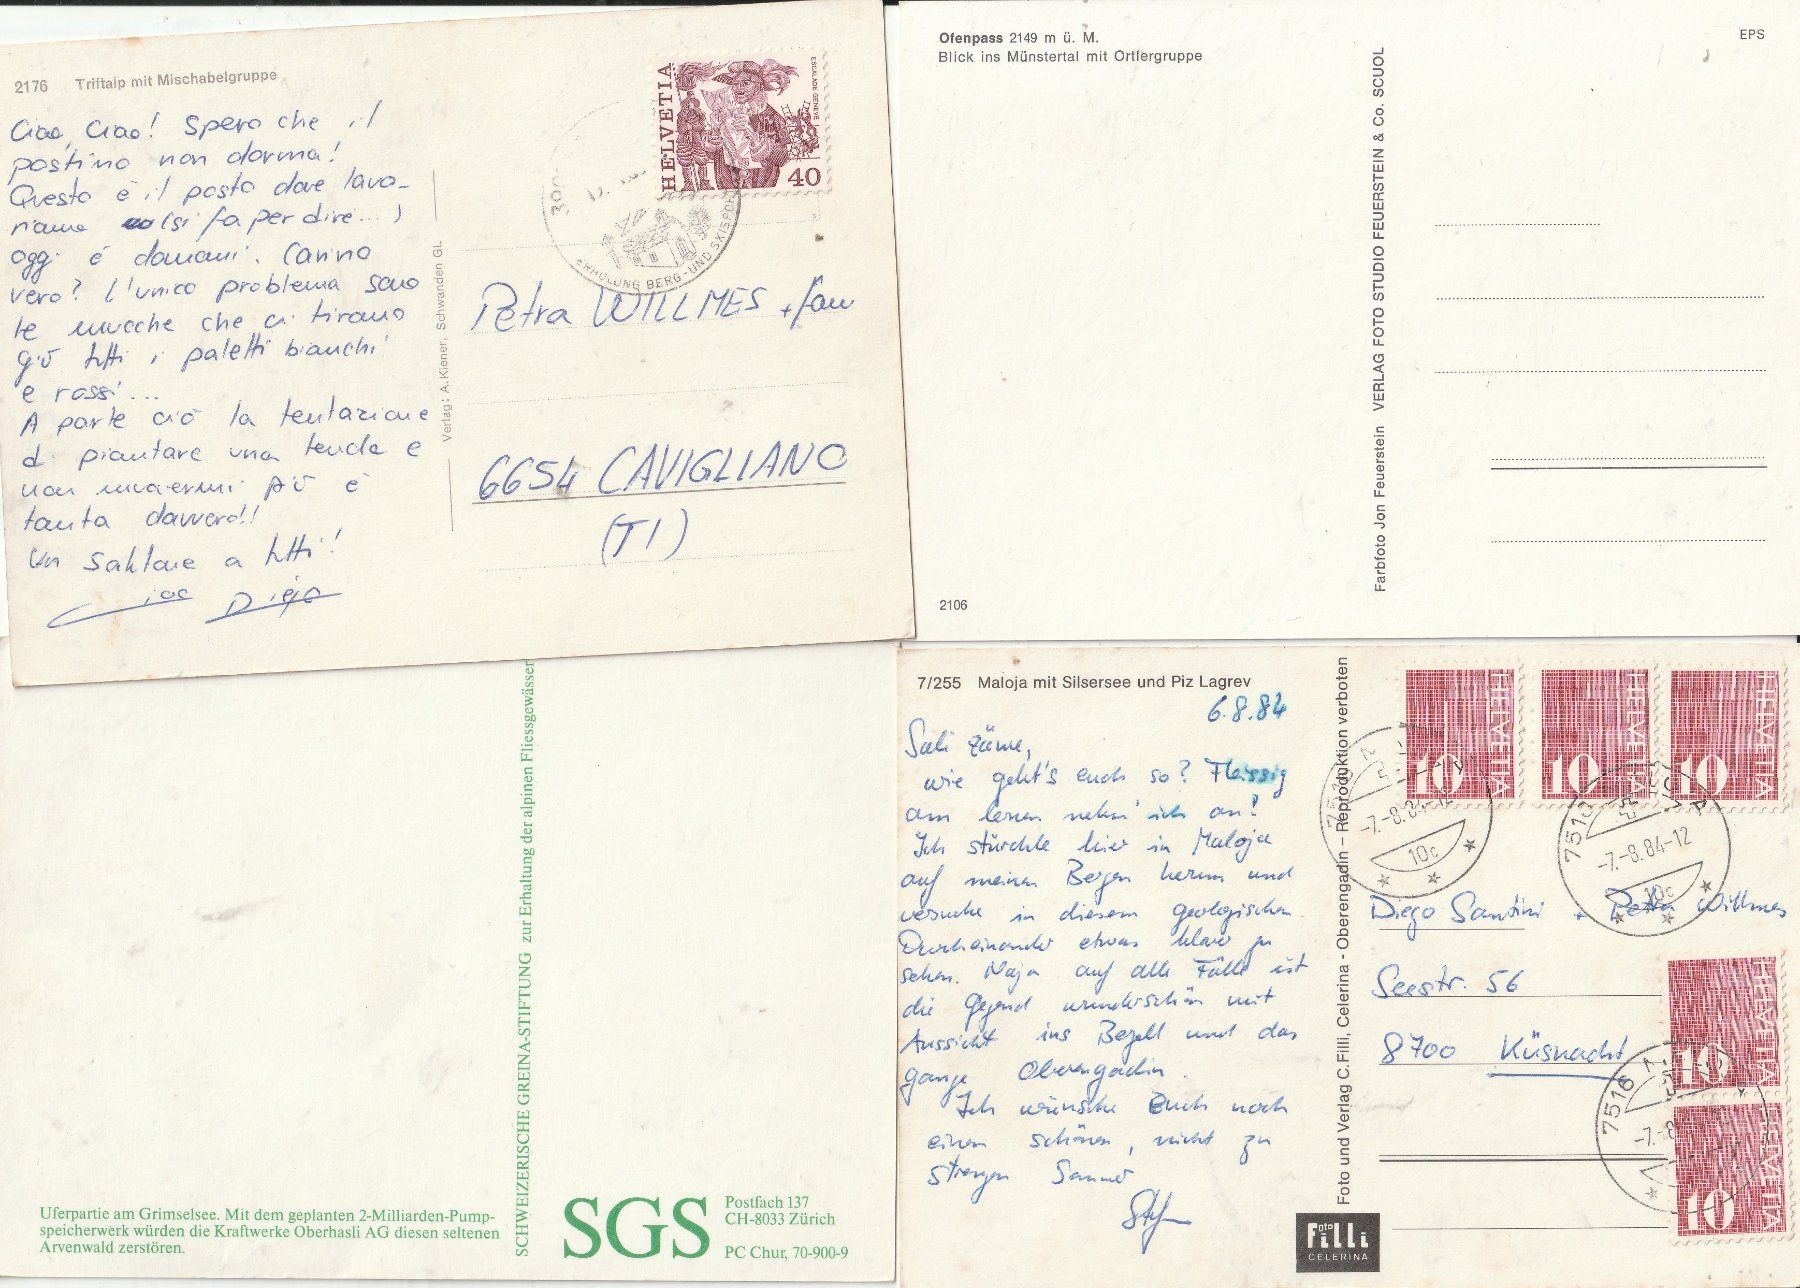 2176 Triftalp mit Mischabelgruppe
Ciao, Ciao! Spero che il
postino non dorma!
Questo è il posto dove lavo-
riamo (si fa per dire...)
oggi e domani. Carino
vero? L'unico problema sono
le mucche che ci tirano
giù tutti i paletti bianchi
e rossi...
A parte ciò la tentazione
di piantare una tenda e
non muovermi più è
tanta davvero!!
Un salutone a tutti!
Ciao Diego
Verlag: A. Kiener, Schwanden GL
HELVETIA
ESCALADE GENEVE
40
ERHOLUNG BERG-UND SKISPORT
Petra WILLMES + fam
6654 CAVIGLIANO
(TI)
Ofenpass 2149 m ü. M.
Blick ins Münstertal mit Ortlergruppe
EPS
Farbfoto Jon Feuerstein VERLAG FOTO STUDIO FEUERSTEIN & Co. SCUOL
2106
SCHWEIZERISCHE GREINA-STIFTUNG zur Erhaltung der alpinen Fliessgewässer
Uferpartie am Grimselsee. Mit dem geplanten 2-Milliarden-Pump-
speicherwerk würden die Kraftwerke Oberhasli AG diesen seltenen
Arvenwald zerstören.
SGS
Postfach 137
CH-8033 Zürich
PC Chur, 70-900-9
7/255 Maloja mit Silsersee und Piz Lagrev
6.8.84
Sali zäme,
wie geht's euch so? Fleissig
am lernen nehm' ich an!
Ich stürchle hier in Maloja
auf meinen Bergen herum und
versuche in diesem geologischen
Durcheinander etwas klar zu
sehen. Naja auf alle Fälle ist
die Gegend wunderschön mit
Aussicht ins Bergell und das
ganze Oberengadin.
Ich wünsche Euch noch
einen schönen, nicht zu
strengen Sommer
Foto und Verlag C. Filli, Celerina - Oberengadin – Reproduktion verboten
Foto Filli
CELERINA
HELVETIA
10
HELVETIA
10
HELVETIA
10
7516 MALOJA
-7.-8.84-12
10c
7516 MALOJA
-7.-8.84-12
10c
Diego Santini + Petra Willmes
Seestr. 56
8700 Küsnacht
HELVETIA
10
HELVETIA
10
7516
-7.-8